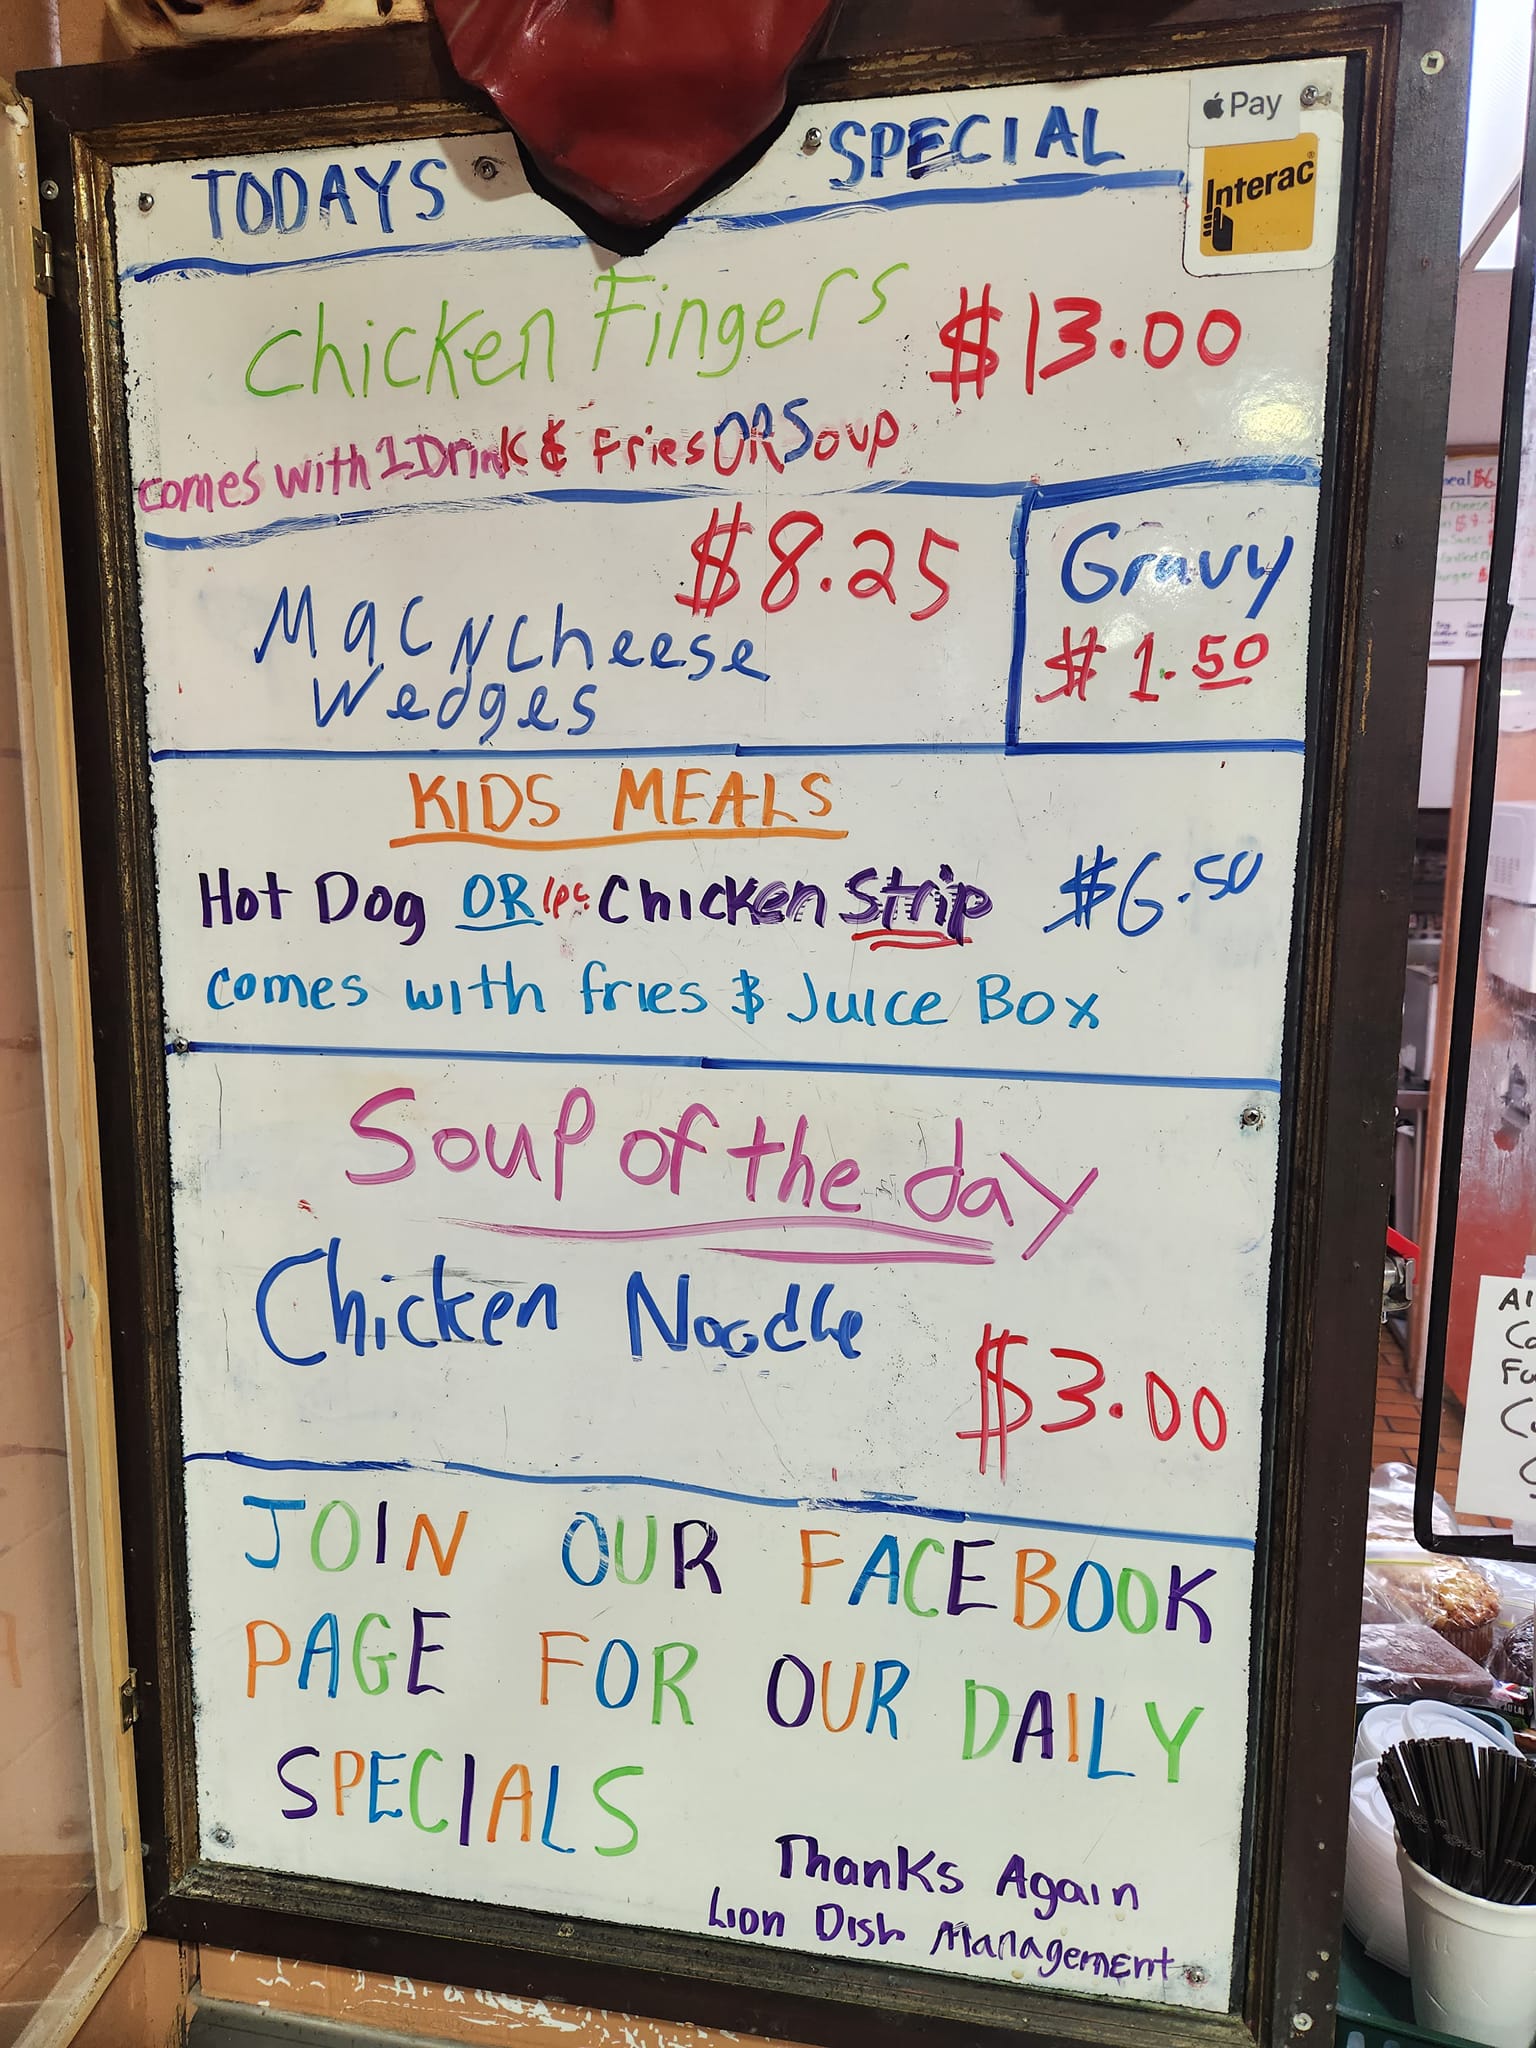 TODAYS SPECIAL
Pay
Interac
Chicken Fingers $13.00
comes with 1 Drink & Fries OR Soup
$8.25
Mac N Cheese
Wedges
Gravy
$1.50
KIDS MEALS
Hot Dog OR 1pc Chicken Strip $6.50
comes with fries & Juice Box
Soup of the day
Chicken Noodle
$3.00
JOIN OUR FACEBOOK
PAGE FOR OUR DAILY
SPECIALS
Thanks Again
Lion Dish Management